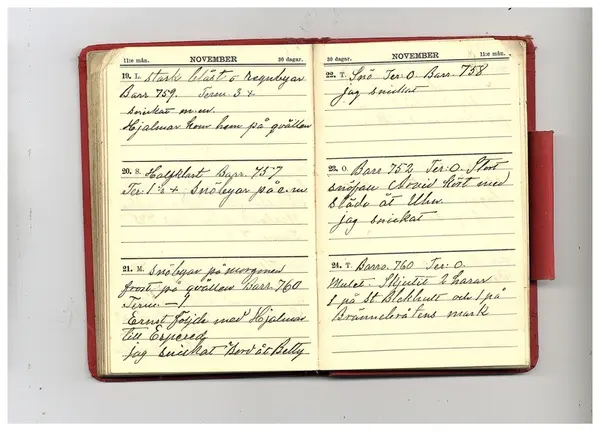 11te mån. NOVEMBER 30 dagar.
19. L. stark blåst o regnbyar
Barr 759. Term 3+
snickat m.m.
Hjalmar kom hem på qvällen
20. S. Halfklart Barr. 757
Ter. 1½+ Snöbyar på e.m
21. M. Snöbyar på morgonen
frost på qvällen Barr. 760
Term –1
Ernst följde med Hjalmar
till Espered
jag snickat Bord åt Betty
30 dagar. NOVEMBER 11te mån.
22. T. Snö Ter. 0 Barr. 758
jag snickat
23. O. Barr 752 Ter. 0. Stort
snöfan (Arvid kört med
släde åt Uhu
jag snickat
24. T. Barro. 760 Ter: 0.
Mulet. Skjutit 2 harar
1 på St Blekhult och 1 på
mark